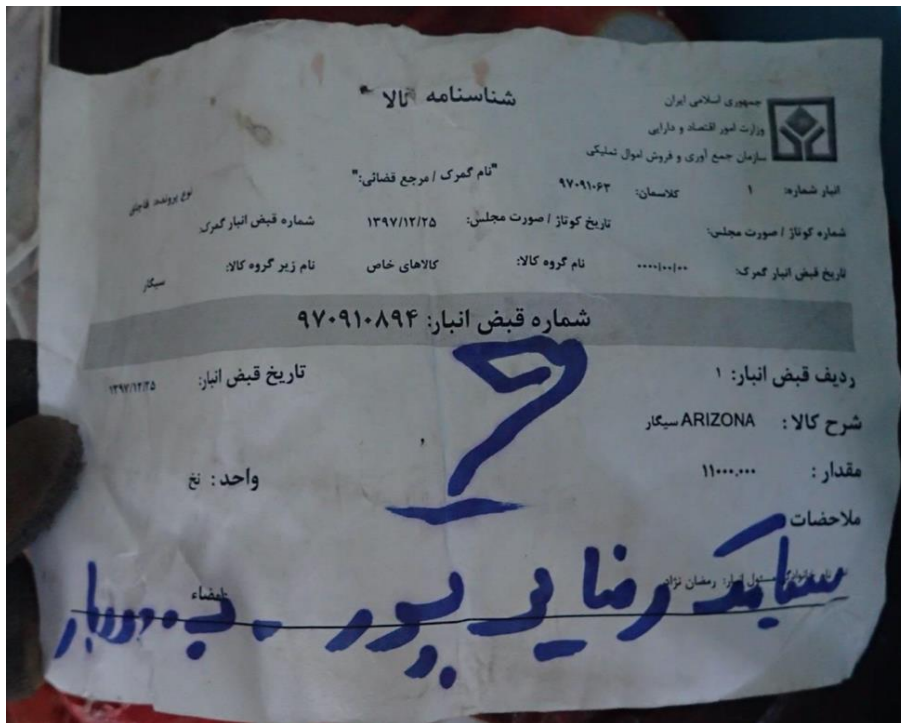 شناسنامه کالا
جمهوری اسلامی ایران
وزارت امور اقتصاد و دارایی
سازمان جمع آوری و فروش اموال تملیکی
انبار شماره: ۱ کلاسمان: ۹۷۰۹۱۰۶۳ "نام گمرک / مرجع قضائی:" نوع پرونده: قاچاق
شماره کوتاژ / صورت مجلس: تاریخ کوتاژ / صورت مجلس: ۱۳۹۷/۱۲/۲۵ شماره قبض انبار گمرک:
تاریخ قبض انبار گمرک: ۰۰۰۰/۰۰/۰۰ نام گروه کالا: کالاهای خاص نام زیر گروه کالا: سیگار
شماره قبض انبار: ۹۷۰۹۱۰۸۹۴
ردیف قبض انبار: ۱ تاریخ قبض انبار: ۱۳۹۷/۱۲/۲۵
شرح کالا : سیگار ARIZONA
مقدار : ۱۱۰۰۰.۰۰۰ واحد : نخ
ملاحضات
نام خانوادگی مسئول انبار: رمضان نژاد امضاء
سیامک رضایی پور -